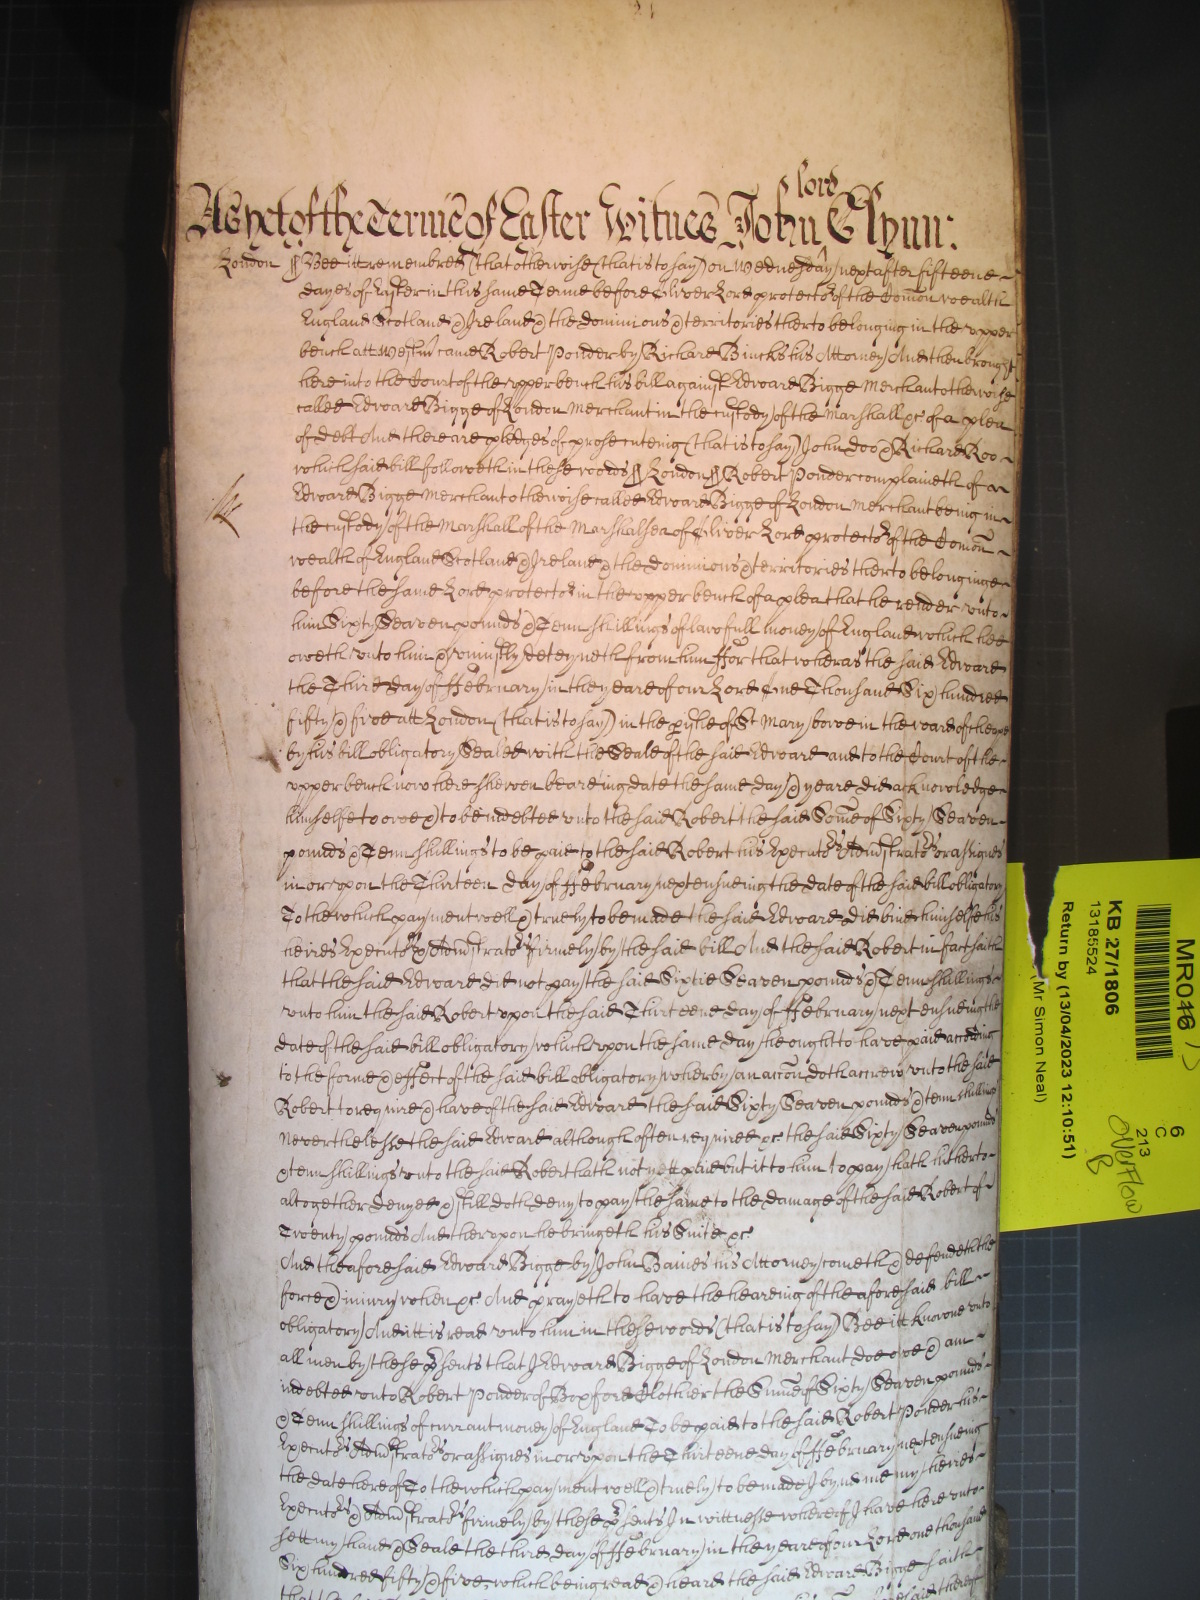 As yet of the Terme of Easter Witnes John lord Glynn:
London ¶ Bee itt remembred (that otherwise (that is to say) on Wednesday next after fifteene
dayes of Easter in this same Terme before Oliver Lord protector of the Comon wealth
England Scotland & Ireland & the dominions & territories therto belonging in the upper
bench att Westm came Robert Ponder by Richard Bincks his Attorney And then brought
here into the Court of the upper bench his bill against Edward Bigge Merchant otherwise
called Edward Bigge of London Merchant in the custody of the Marshall &c of a plea
of debt And there are pledges of prosecuting (that is to say) John Doo & Richard Roo
which said bill followeth in these words ¶ London ¶ Robert Ponder complaineth of
Edward Bigge Merchant otherwise called Edward Bigge of London Merchant being in
the custody of the Marshall of the Marshalsea of Oliver Lord protector of the Comon
wealth of England Scotland & Ireland & the dominions & territories therto belonginge
before the same Lord protector in the upper bench of a plea that he render unto
him Sixty Seaven pounds & Tenn shillings of lawfull money of England which hee
oweth unto him & uniustly deteyneth from him ffor that wheras the said Edward
the Third day of ffebruary in the yeare of our Lord One Thousand Six hundred
fifty & five att London (that is to say) in the pishe of St Mary bowe in the ward of cheape
by his bill obligatory Sealed with the Seale of the said Edward and to the Court of the
upper bench now here shewen beareing date the same day & yeare did acknowledge
himselfe to owe & to be indebted unto the said Robert the said Some of Sixty Seaven
pounds & Tenn shillings to be paid to the said Robert his Executors Administrators or assignes
in or upon the Thirteen day of ffebruary next ensueing the date of the said bill obligatory
To the which payment well & truely to be made the said Edward did bind himselfe his
heires Executors & Administrators firmely by the said bill And the said Robert in fact saith
that the said Edward did not pay the said Sixtie Seaven pounds & Tenn shillings
unto him the said Robert upon the said Thirteene day of ffebruary next ensueing the
date of the said bill obligatory which upon the same day he ought to have paid according
to the forme & effect of the said bill obligatory wherby an accon doth accrew unto the said
Robert to require & have of the said Edward the said Sixty Seaven pounds & tenn shillings
neverthelesse the said Edward although often required &c the said Sixty Seaven pounds
& tenn shillings unto the said Robert hath not yett paid but it to him to pay hath hitherto
altogether denyed & still doth deny to pay the same to the damage of the said Robert of
Twenty pounds And therupon he bringeth his Suite &c
And the aforesaid Edward Bigge by John Baines his Attorney cometh & defendeth the
force & iniury when &c And prayeth to have the heareing of the aforesaid bill
obligatory And itt is read unto him in these words (that is to say) Bee itt knowne unto
all men by these psents that I Edward Bigge of London Merchant doe owe & am
indebted unto Robert Ponder of Boxford Clothier the Sume of Sixty Seaven pounds
& Tenn shillings of currant money of England To be paid to the said Robert Ponder his
Executors Administrators or assignes in or upon the Thirteene day of ffebruary next ensueing
the date hereof To the which payment well & truely to be made I bynd me my heires
Executors & Administrators firmely by these psents In wittnesse whereof I have here unto
sett my hand & Seale the third day of ffebruary in the yeare of our Lord one thousand
Six hundred fifty & five which being read & heard the said Edward Bigge saith
that the
MR046
6
C
213
Overflow
B
KB 27/1806
13185524
Return by (13/04/2023 12:10:51)
Mr Simon Neal)